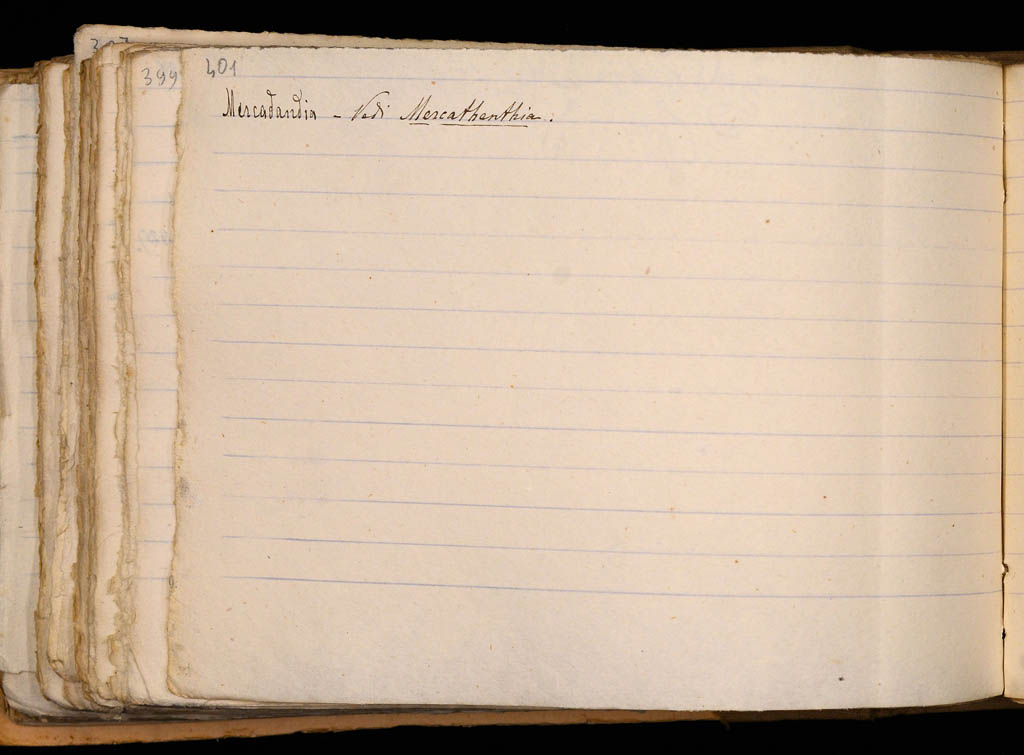 399
401
Mercadandia - Vedi Mercathanthia.